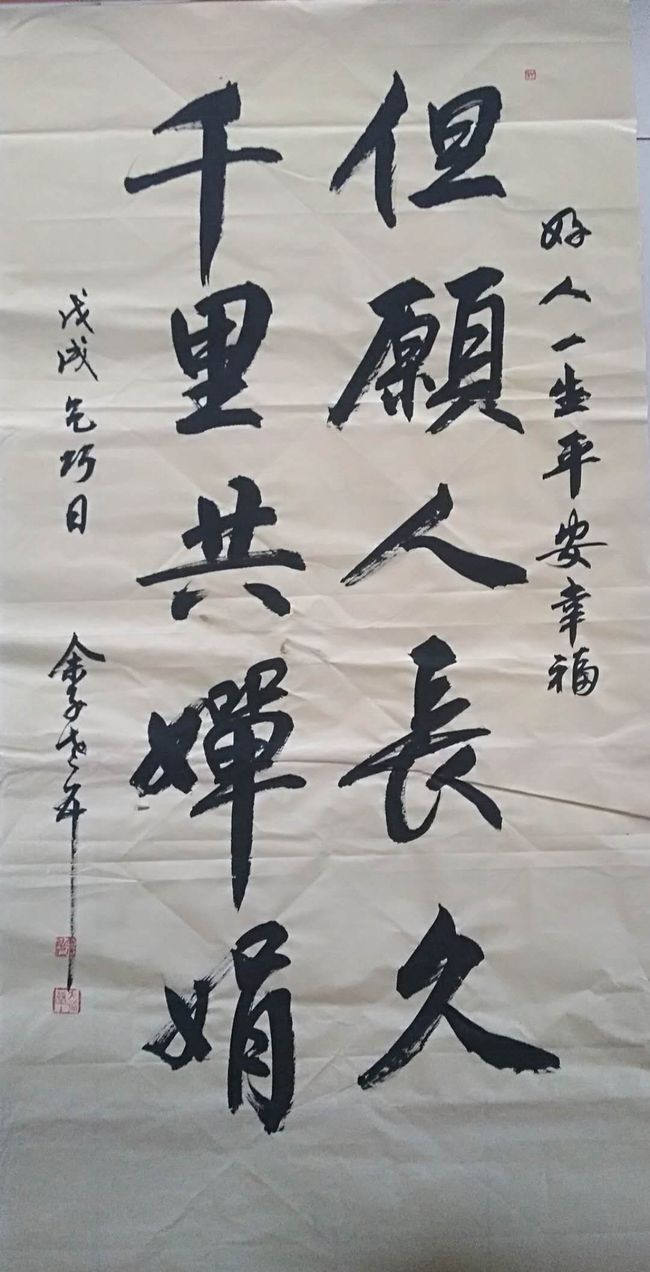 好人一生平安幸福
但願人長久
千里共嬋娟
戊戌乞巧日